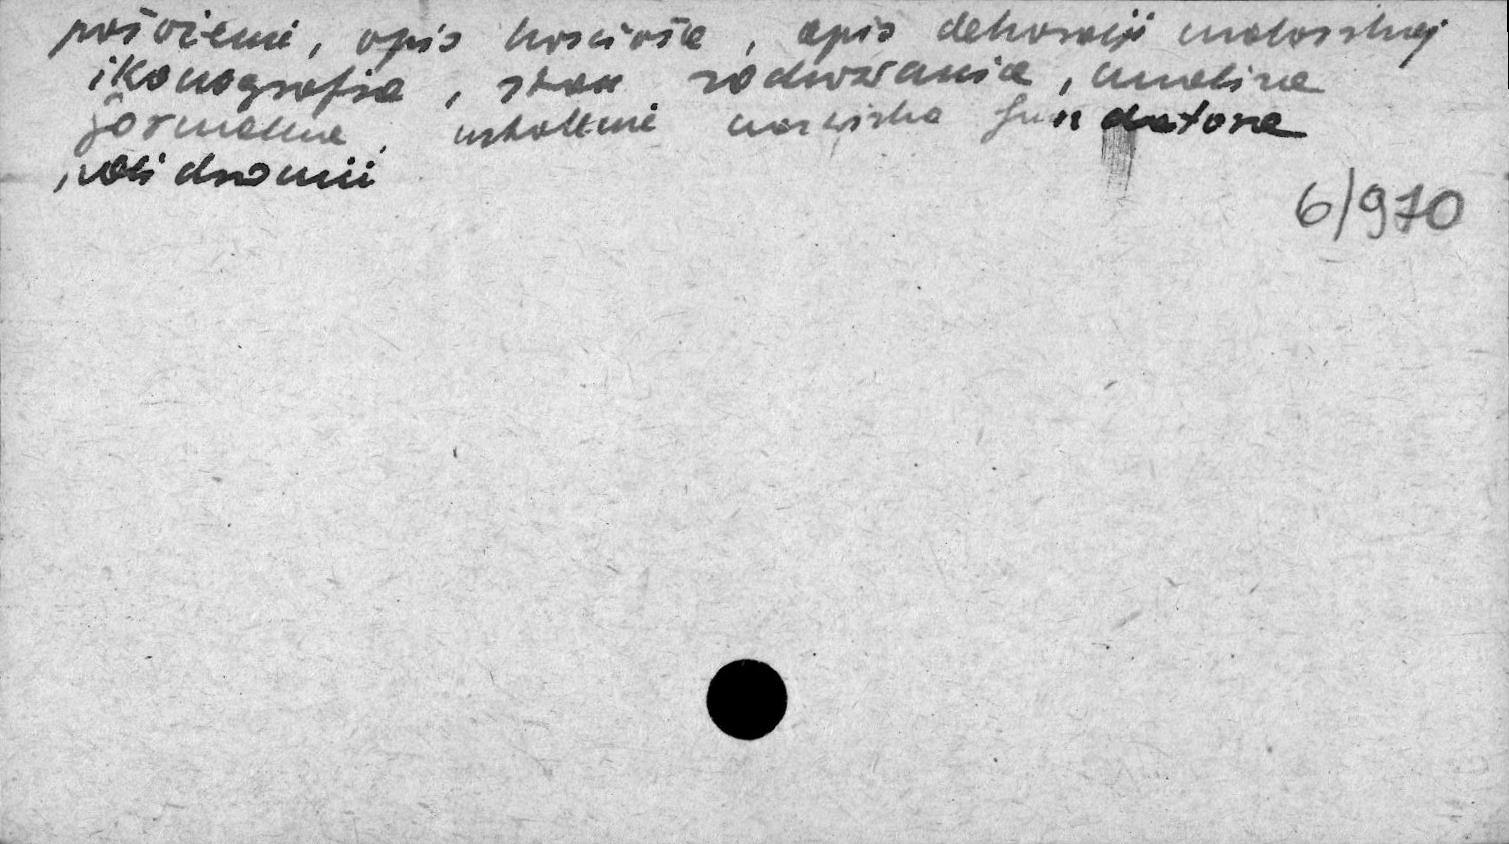 położenie, opis kościoła, opis dekoracji malarskiej
ikonografia, stan zachowania, analiza
formalna, ustalenie nazwiska fundatora
i
6/970